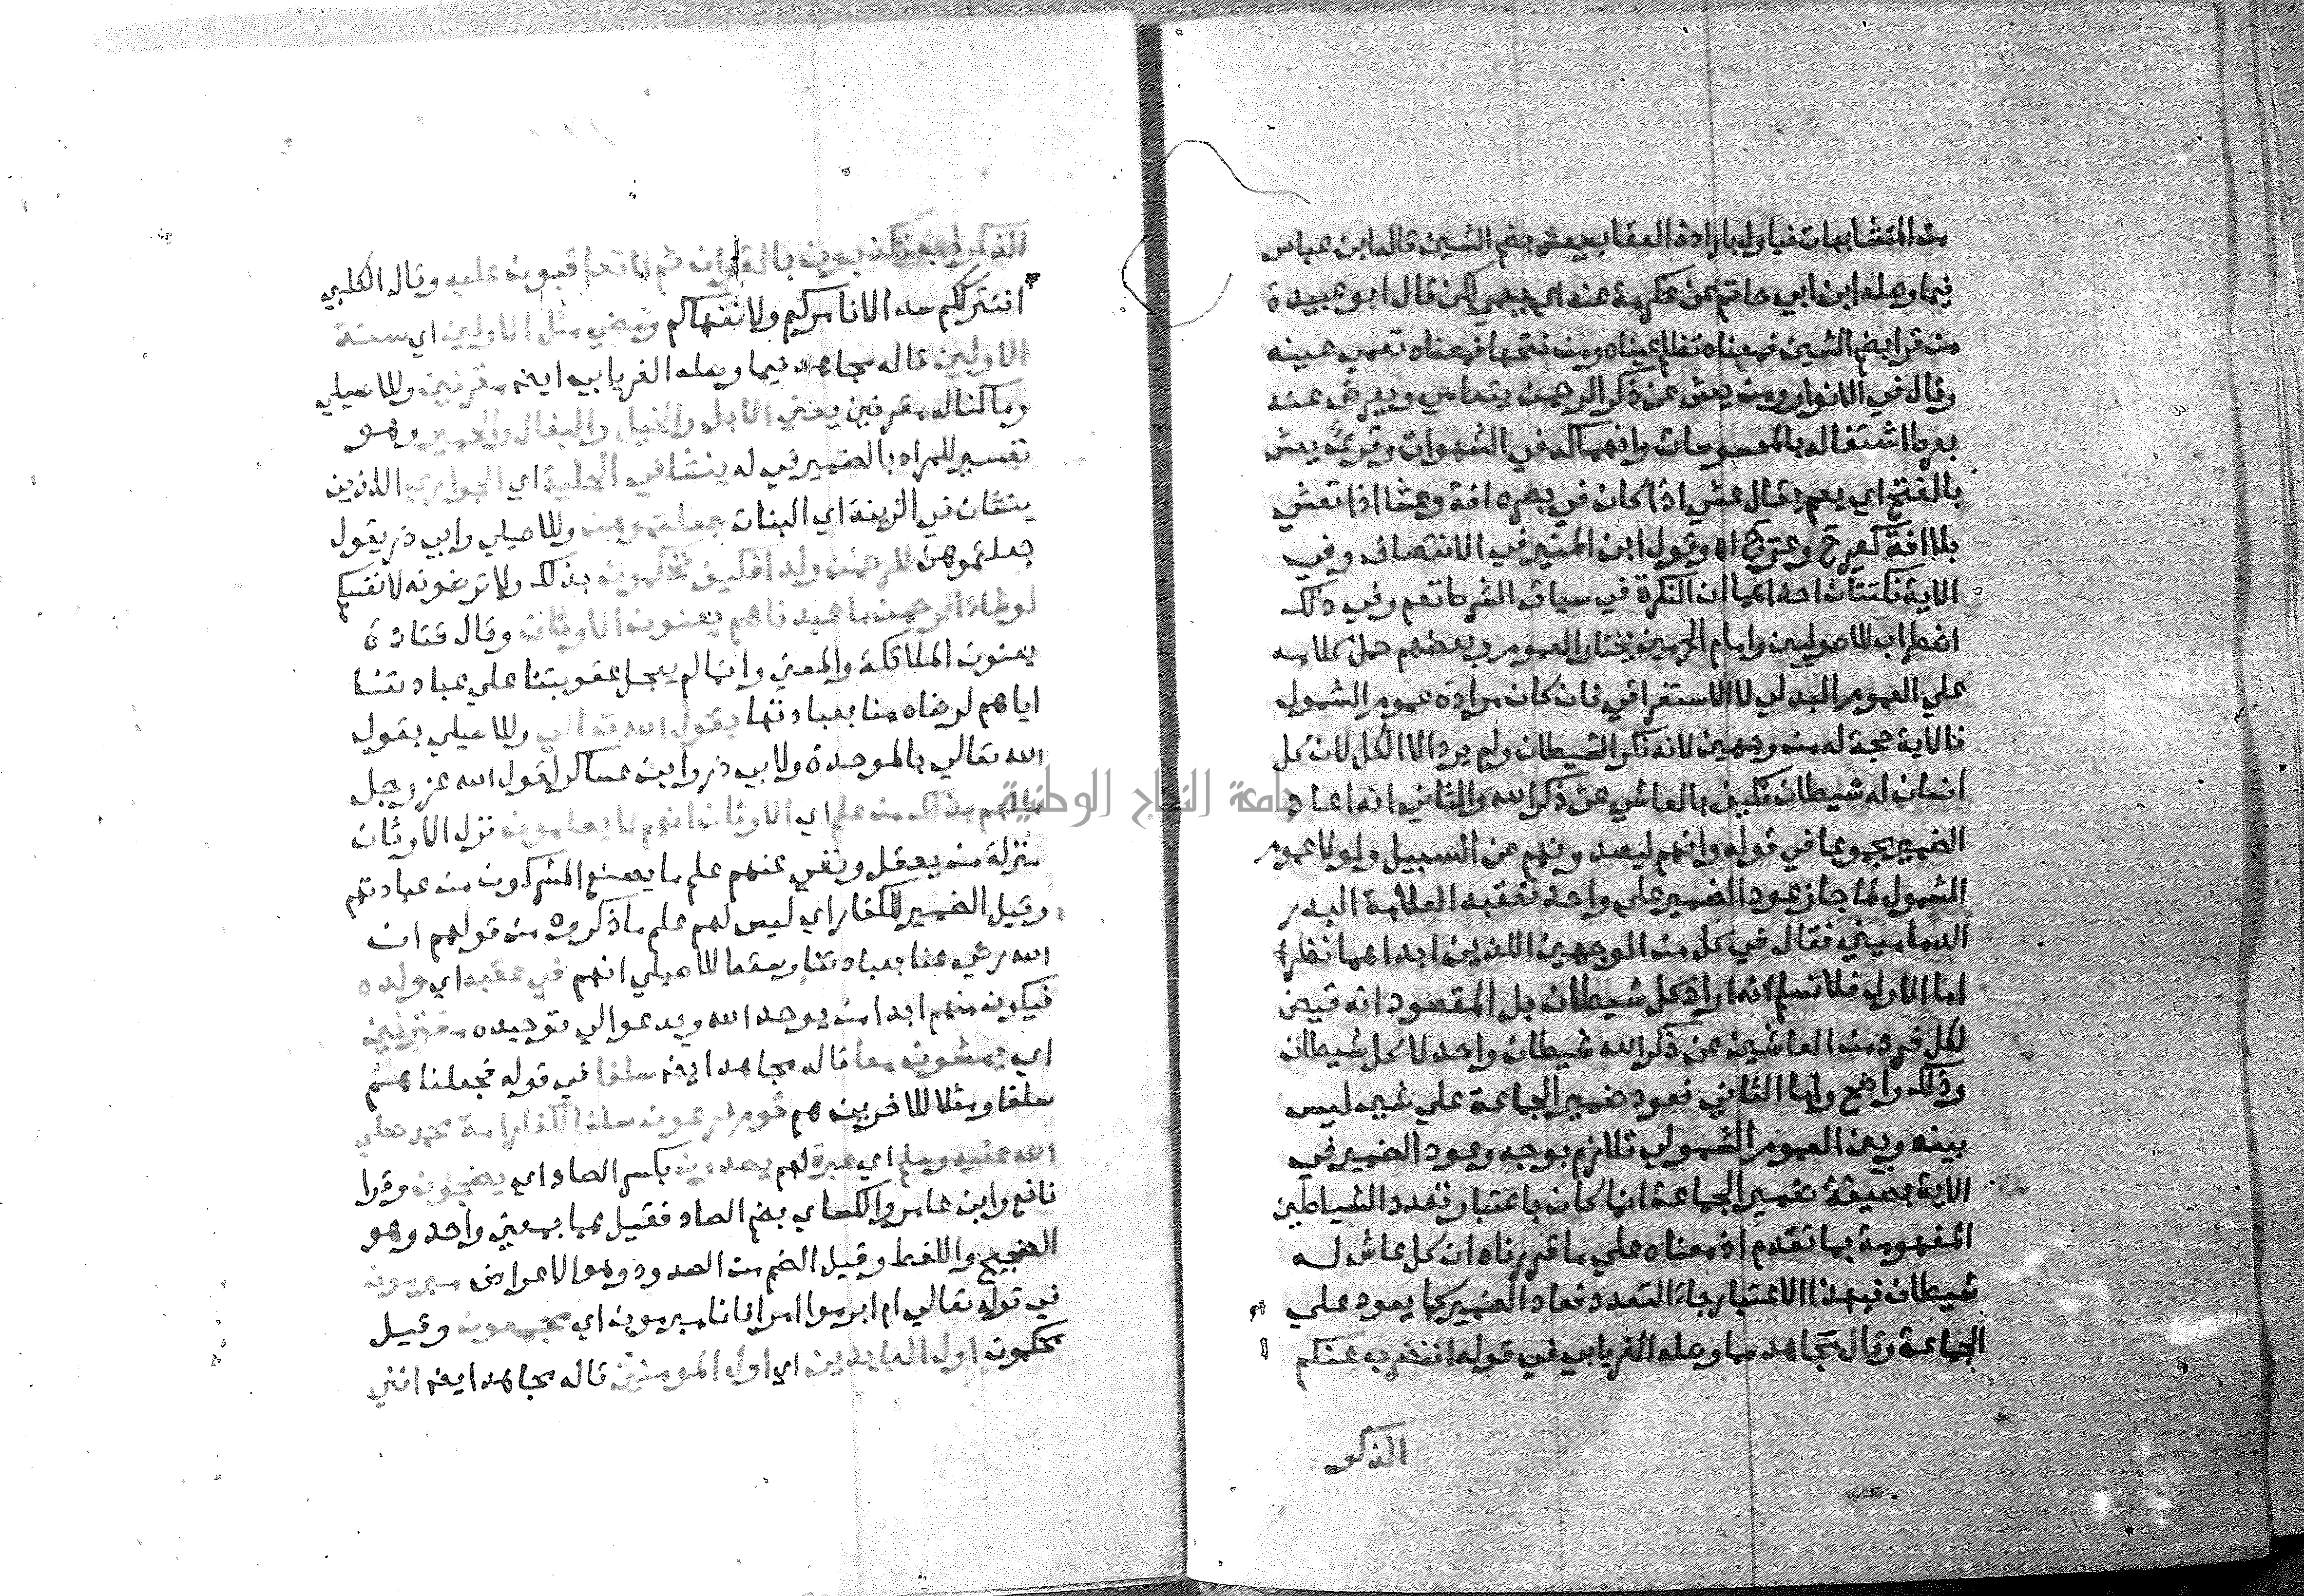 من المتشابهات فياول بارادة العقاب يعش بضم الشين قاله ابن عباس
فيما وصله ابن ابي حاتم عن عكرمة عنه اي يعمي لكن قال ابو عبيدة
من قرا بضم الشين فمعناه تظلم عيناه ومن فتحها فمعناه تعمي عينه
وقال في الانوار ومن يعش عن ذكر الرحمن يتعامي ويعرض عنه
بفرط اشتغاله بالمحسوسات وانهماكه في الشهوات وقري يعش
بالفتح اي يعم يقال عشي اذا كان في بصره افة وعشا اذا تعشي
بلا افة كعرج وعرج اه وقول ابن المنير في الانتصاف وفي
الاية نكتتان احداهما ان النكرة في سياق الشرط تعم وفي ذلك
اضطراب للاصوليين وامام الحرمين يختار العموم وبعضهم حمل كلامه
علي العموم البدلي لا الاستغراقي فان كان مراده عموم الشمول
فالاية حجة له من وجهين لانه نكر الشيطان ولم يرد الا الكل لان كل
انسان له شيطان فكيف بالعاشي عن ذكر الله والثاني انه اعاد
الضمير مجموعا في قوله وانهم ليصدونهم عن السبيل ولولا عموم
الشمول لما جاز عود الضمير علي واحد تعقبه العلامة البدر
الدماميني فقال في كل من الوجهين اللذين ابداهما نظر
اما الاول فلا نسلم انه اراد كل شيطان بل المقصود انه قيض
لكل فرد من العاشين عن ذكر الله شيطان واحد لا كل شيطان
وذلك واضح واما الثاني فعود ضمير الجماعة علي شي ليس
بينه وبين العموم الشمولي تلازم بوجه وعود الضمير في
الاية بصيغة ضمير الجماعة انما كان باعتبار تعدد الشياطين
المفهومة بما تقدم اذ معناه علي ما قررناه ان كل عاش له
شيطان فبهذا الاعتبار جاء التعدد فعاد الضمير كما يعود علي
الجماعة وقال مجاهد مما وصله الفريابي في قوله افنضرب عنكم
الذكر
الذكر اي تكذبون بالقران ثم لا تعاقبون عليه وقال الكلبي
انترككم سدا لا نامركم ولا ننهاكم ومضي مثل الاولين اي سنة
الاولين قاله مجاهد فيما وصله الفريابي ايضا مقرنين وللاصيلي
وما كنا له مقرنين يعني الابل والخيل والبغال والحمير وهو
تفسير للمراد بالضمير في له ينشا في الحلية اي الجواري اللاتي
ينشان في الزينة اي البنات جعلتموهن وللاصيلي وابي ذر يقول
جعلتموهن للرحمن ولدا فكيف تحكمون بذلك ولا ترضونه لانفسكم
لو شاء الرحمن ما عبدناهم يعنون الاوثان وقال قتادة
يعنون الملائكة والمعني وانما لم يعجل عقوبتنا علي عبادتنا
اياهم لرضاه منا بعبادتها يقول الله تعالي وللاصيلي بقول
الله تعالي بالموحدة ولابي ذر وابن عساكر لقول الله عز وجل
ما لهم بذلك من علم اي الاوثان انهم لا يعلمون نزل الاوثان
منزلة من يعقل ونفي عنهم علم ما يصنع المشركون من عبادتهم
وقيل الضمير للكفار اي ليس لهم علم ما ذكروه من قولهم ان
الله رضي عنا بعبادتنا وسقط للاصيلي انهم في عقبه اي ولده
فيكون منهم ابدا من يوحد الله ويدعو الي توحيده مقترنين
اي يمشون معا قاله مجاهد ايضا سلفا في قوله فجعلناهم
سلفا ومثلا للاخرين هم قوم فرعون سلفا لكفار امة محمد صلي
الله عليه وسلم اي عبرة لهم يصدون بكسر الصاد اي يضجون وقرا
نافع وابن عامر والكساي بضم الصاد فقيل هما بمعني واحد وهو
الضجيج واللغط وقيل الضم من الصدود وهو الاعراض مبرمون
في قوله تعالي ام ابرموا امرا فانا مبرمون اي مجمعون وقيل
محكمون اول العابدين اي اول المومنين قاله مجاهد ايضا انني
جامعة النجاح الوطنية